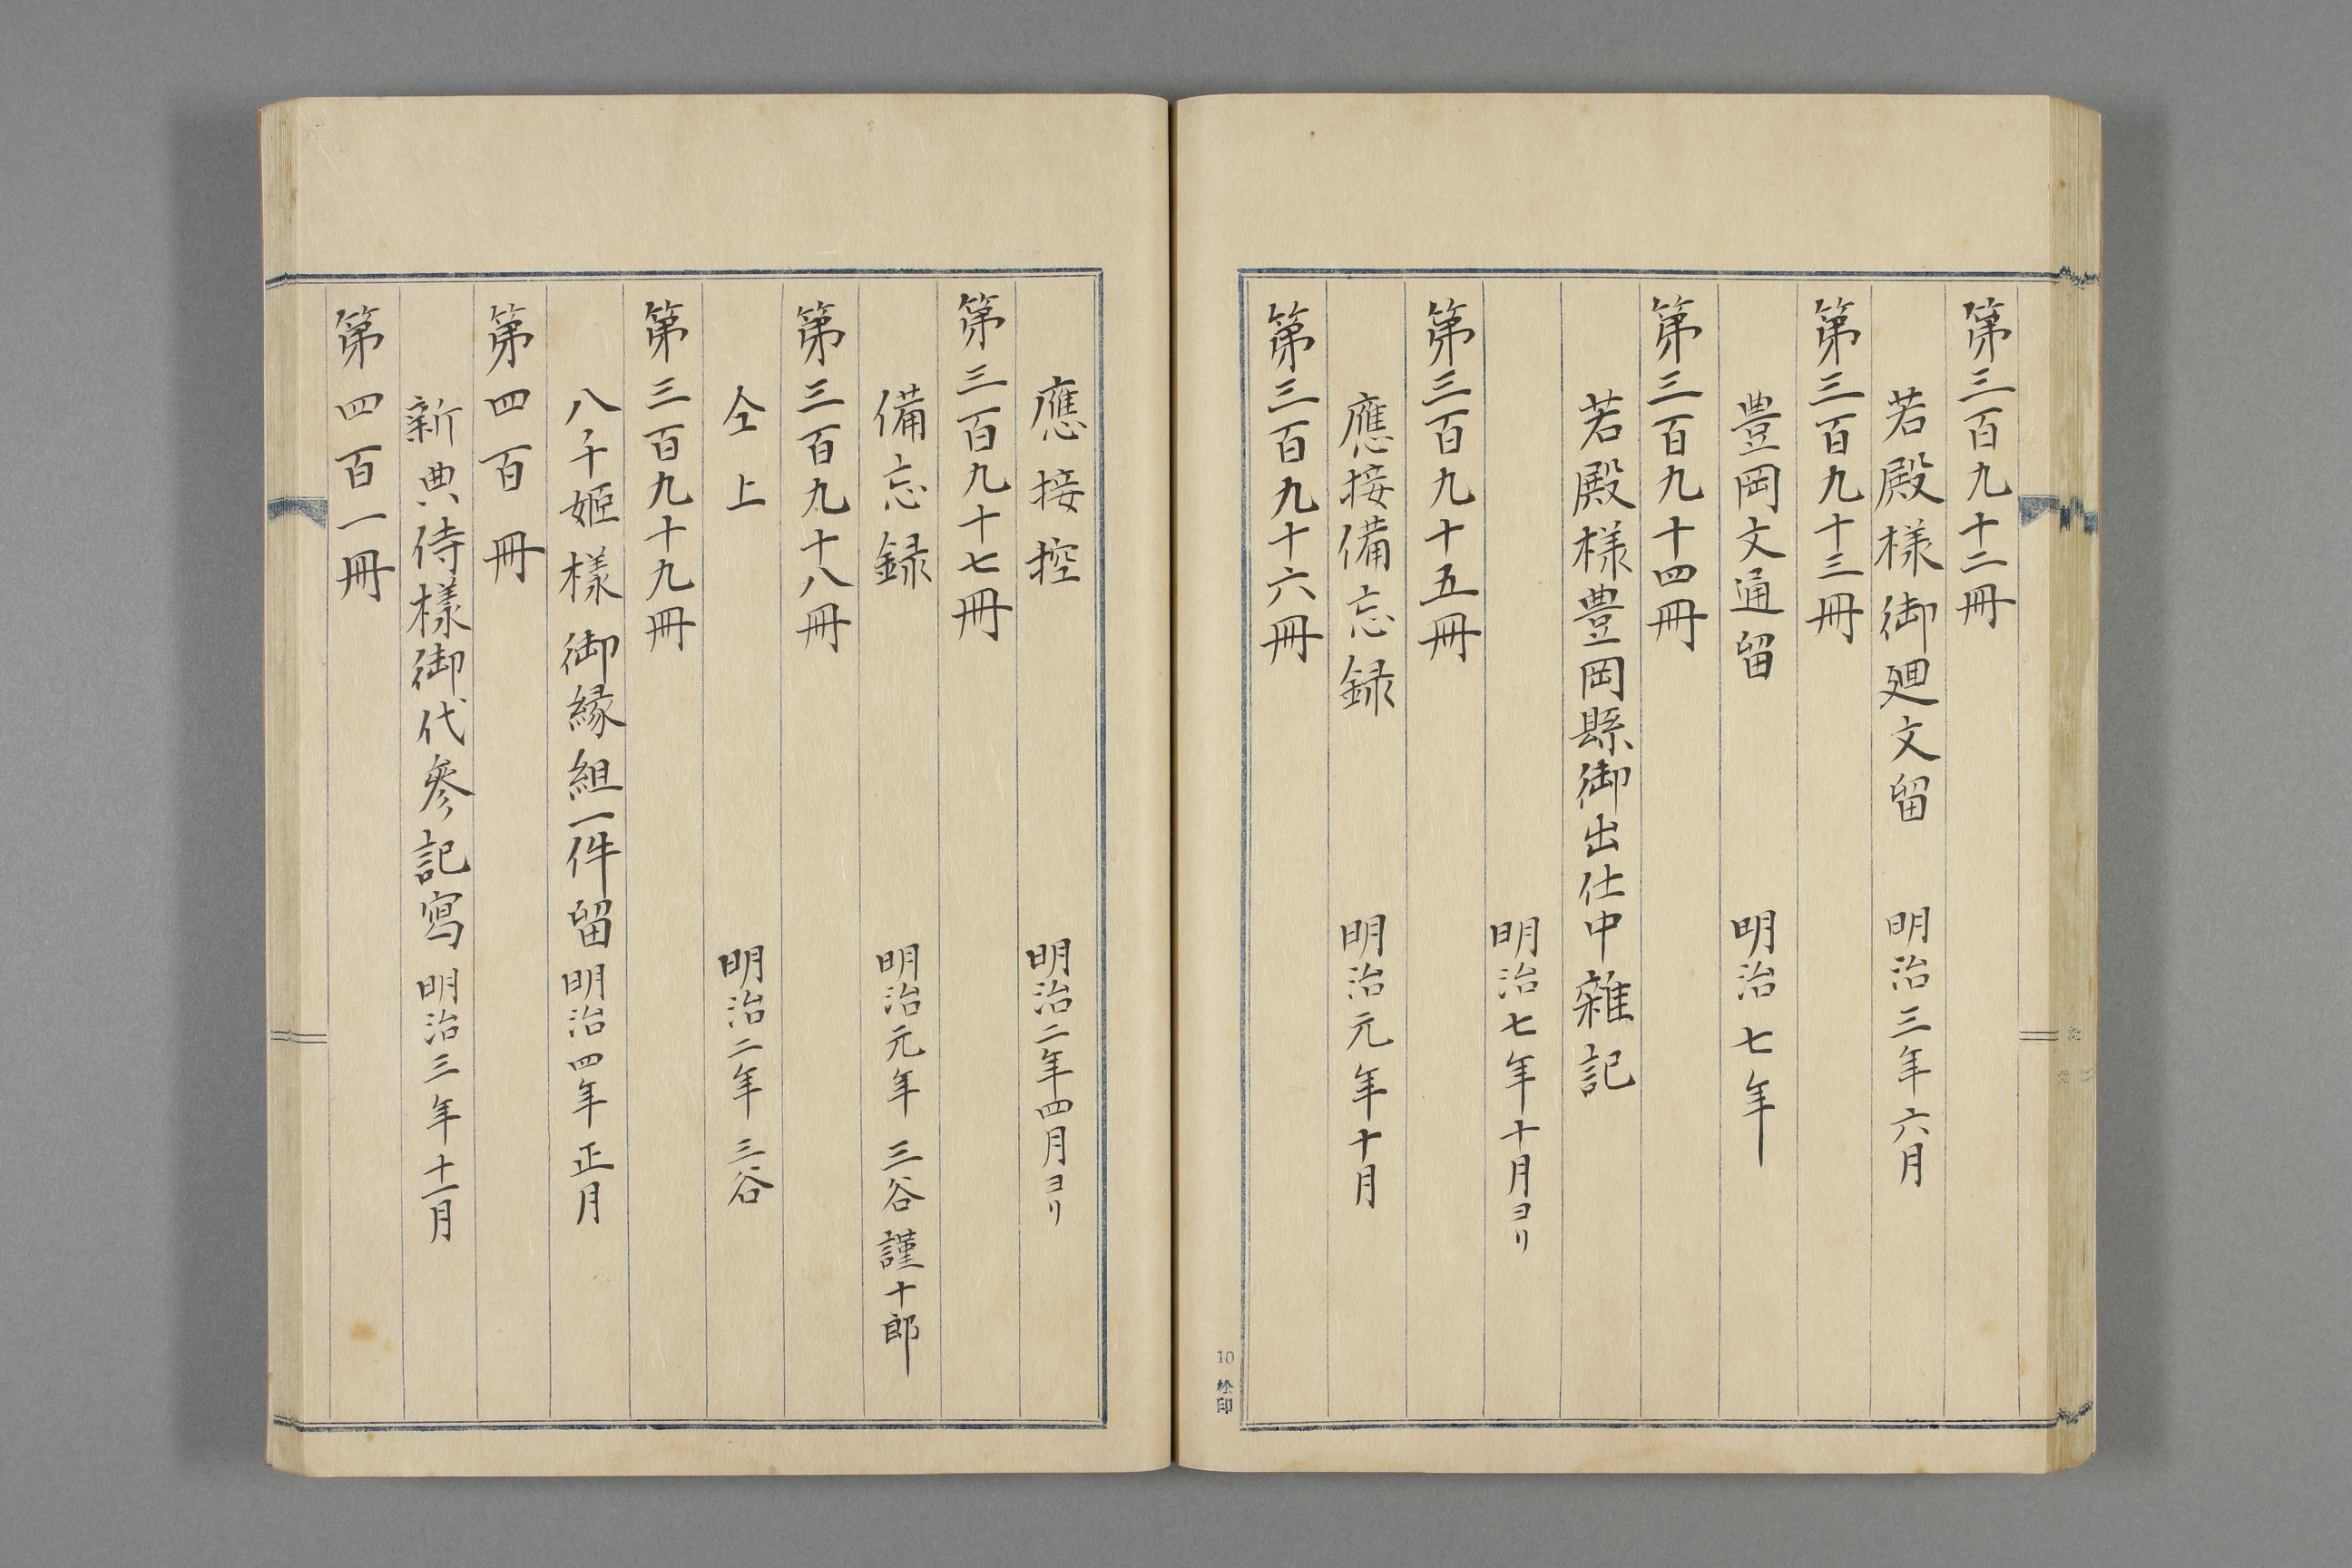 第三百九十二冊
若殿様御廻文留 明治三年六月
第三百九十三冊
豊岡文通留 明治七年
第三百九十四冊
若殿様豊岡縣御出仕中雜記
明治七年十月ヨリ
第三百九十五冊
應接備忘録 明治元年十月
第三百九十六冊
10 松印
應接控 明治二年四月ヨリ
第三百九十七冊
備忘録 明治元年 三谷謹十郎
第三百九十八冊
仝上 明治二年 三谷
第三百九十九冊
八千姫様御縁組一件留 明治四年正月
第四百冊
新典侍様御代参記寫 明治三年十一月
第四百一冊